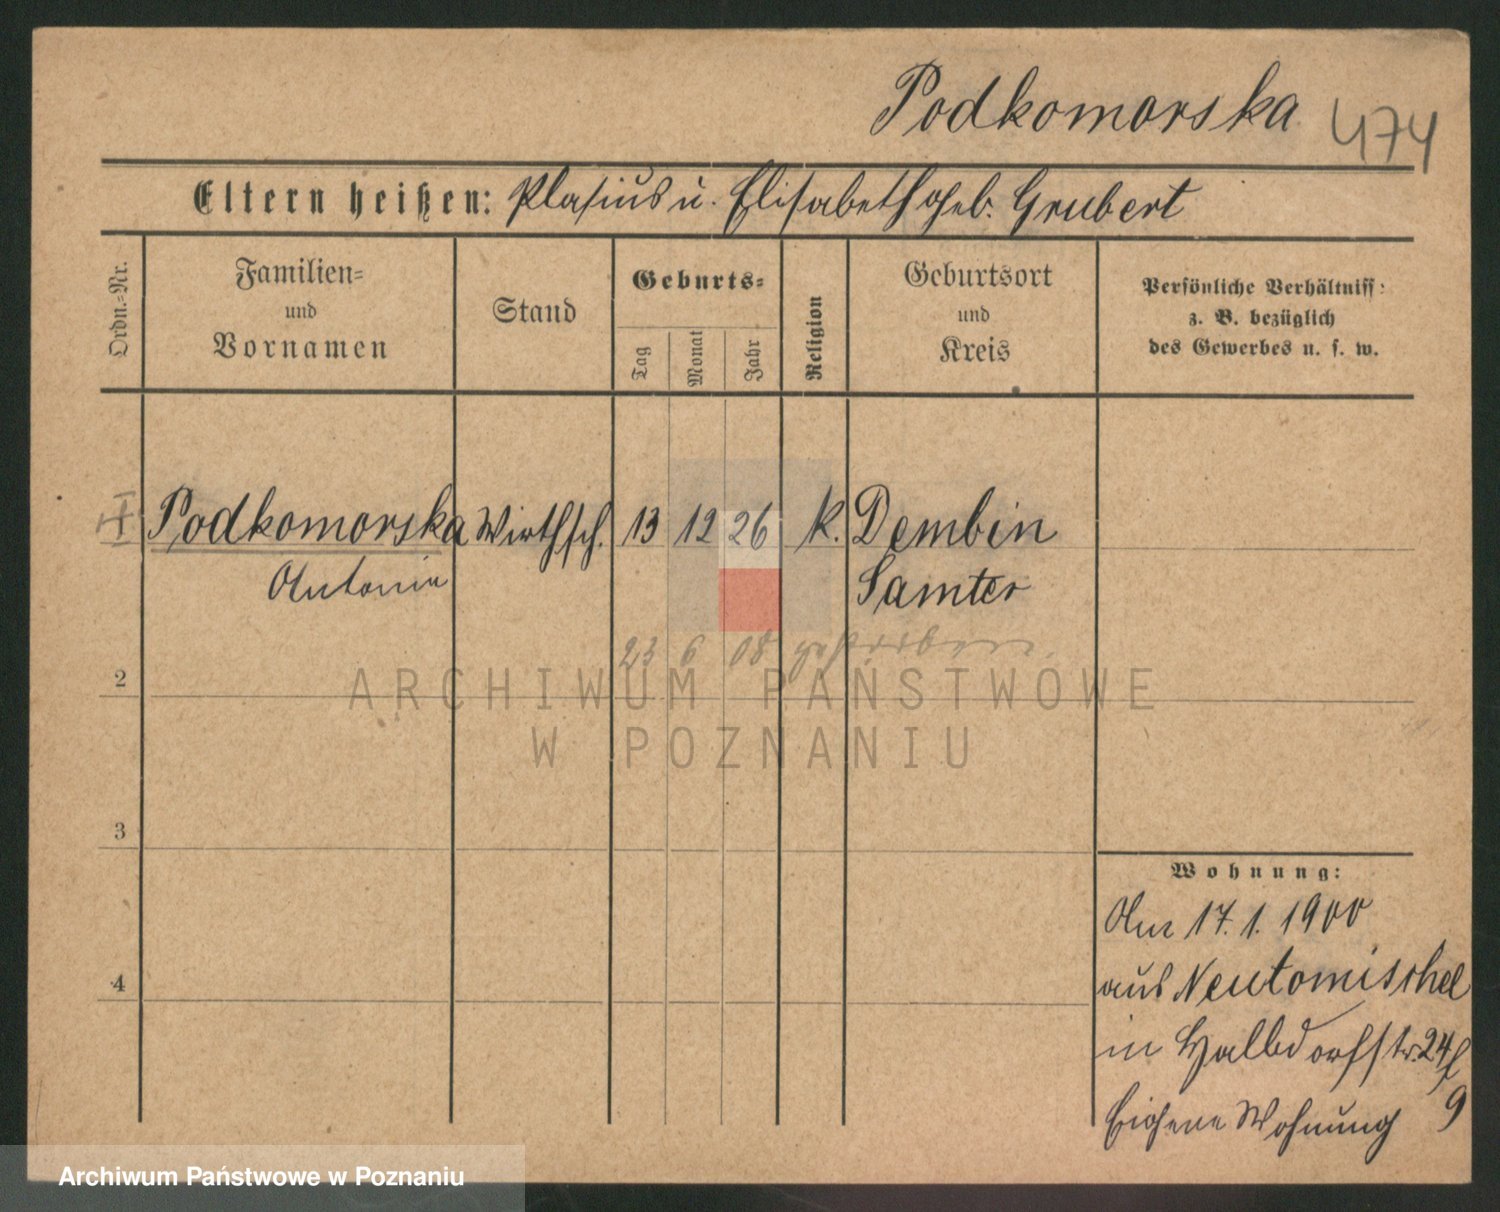 Podkomorska 474
Eltern heißen: Plasius u. Elisabeth geb. Grubert
Ordn.-Nr.
Familien-
und
Vornamen
Stand
Geburts-
Tag
Monat
Jahr
Religion
Geburtsort
und
Kreis
Persönliche Verhältniss:
z. B. bezüglich
des Gewerbes u. s. w.
Podkomorska Wirthsch. 13 12 26 k. Dembin
Antonie Samter
23 6 08 gestorben
2
ARCHIWUM PAŃSTWOWE
W POZNANIU
3
Wohnung:
Am 17. 1. 1900
4
aus Neutomischel
in Halbdorfstr. 24
Eigene Wohnung 9
Archiwum Państwowe w Poznaniu